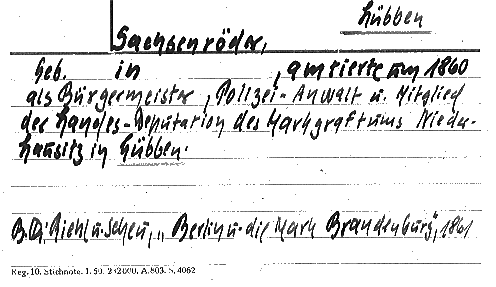 Lübben
Sachsenröder,
Geb. in , amtierte um 1860
als Bürgermeister, Polizei-Anwalt u. Mitglied
der Landes-Deputation des Markgraftums Nieder-
Lausitz in Lübben.
B. Di. Riehl u. Scheu, „Berlin u. die Mark Brandenburg", 1861
Reg. 10. Stichnote. 1. 50. 2000. A. 803. S. 4062